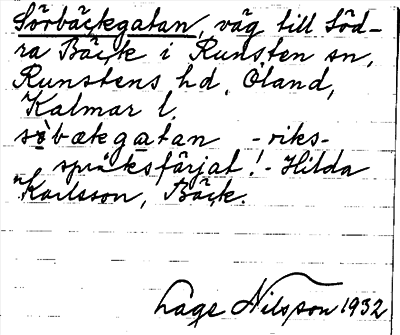 Sörbäckgatan, väg till Söd-
ra Bäck i Runsten sn,
Runstens hd, Öland,
Kalmar l.
söbækgatan - riks-
språksfärjat! - Hilda
Karlsson, Bäck.
Lage Nilsson 1932